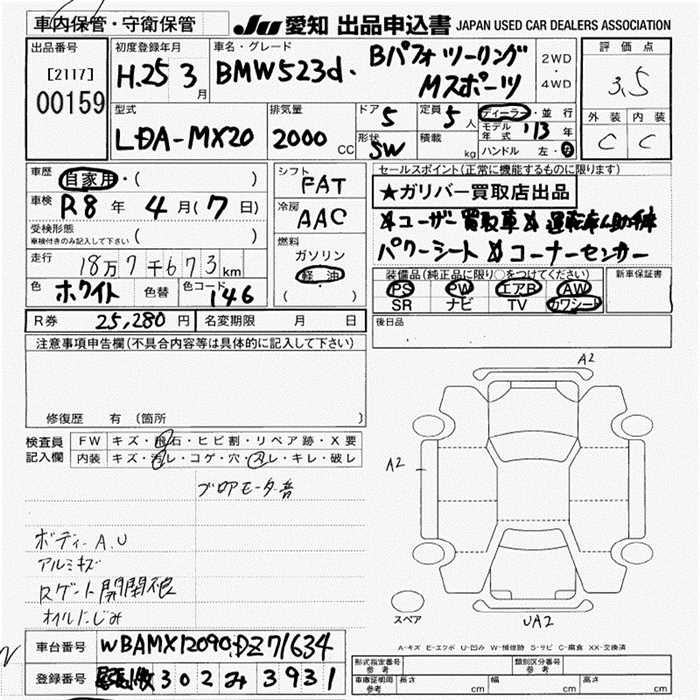 車内保管・守衛保管
JU 愛知 出品申込書 JAPAN USED CAR DEALERS ASSOCIATION
出品番号
[2117]
00159
初度登録年月
H.25 3月
車名・グレード
BMW523d. Bパフォ ツーリング
Mスポーツ
2WD
・
4WD
評価点
3.5
外装 内装
C C
型式
LDA-MX20
排気量
2000 CC
ドア 5
形状 SW
定員 5 人
積載 kg
ディーラー・並行
モデル年式 '13 年
ハンドル 左・右
車歴 自家用・( )
車検 R8 年 4 月(7 日)
受検形態
車検付きのみ記入して下さい ( )
走行 18万7千673km
色 ホワイト 色替 色コード 146
シフト
FAT
冷房
AAC
燃料
ガソリン
軽油
( )
セールスポイント(正常に機能するものに限ります)
★ガリバー買取店出品
パワーシート コーナーセンサー
装備品(純正品に限り○をつけてください)
PS PW エアB AW
SR ナビ TV カワシート
新車保証書
後日品
R券 25,280 円 名変期限 月 日
注意事項申告欄(不具合内容等は具体的に記入して下さい)
修復歴 有(箇所 )
検査員
記入欄
FW キズ・飛石・ヒビ割・リペア跡・X要
内装 キズ・汚レ・コゲ・穴・スレ・キレ・破レ
ブロアモーター音
ボディーA.U
アルミキズ
Rゲート開閉
オイルにじみ
A2
A2
UA2
スペア
A-キズ E-エクボ U-凹み W-補修跡 S-サビ C-腐食 XX-交換済
車台番号 WBAMX12090DZ71634
登録番号 302 み 3931
形式指定番号 参考
類別区分番号 参考
車庫証明用 参考 長さ cm 幅 cm 高さ cm